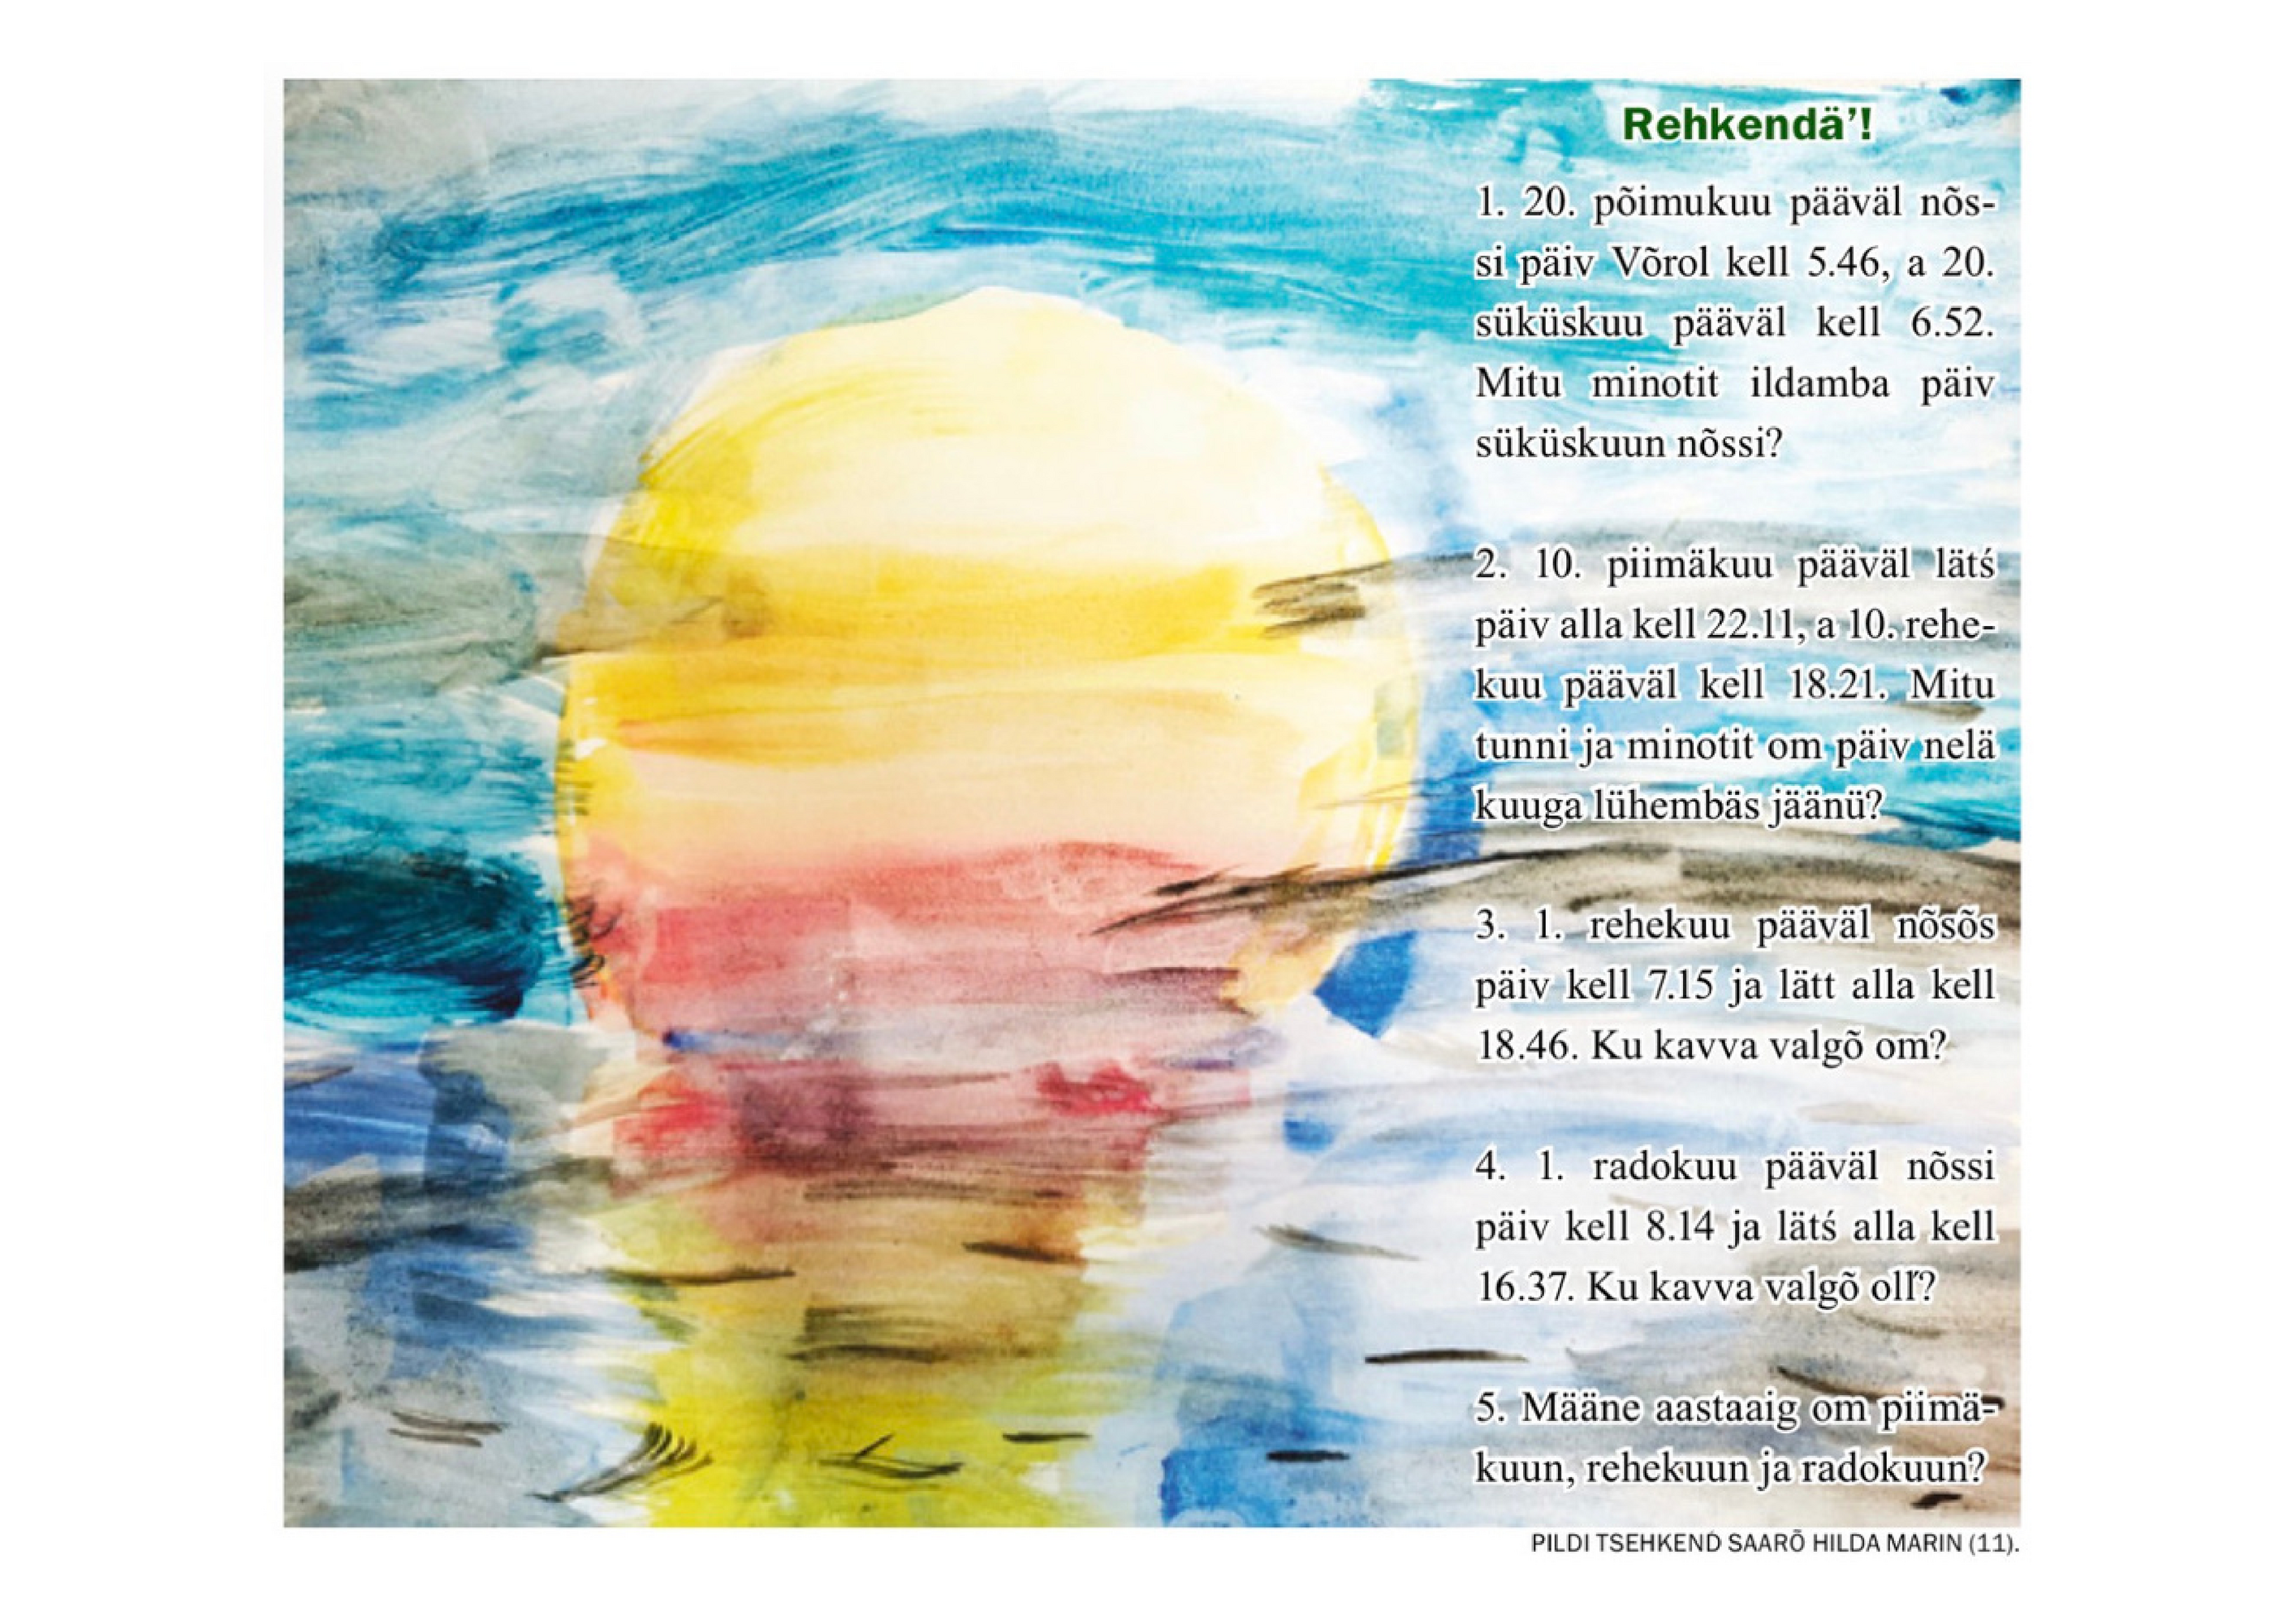 Rehkendä’!
1. 20. põimukuu pääväl nõs-
si päiv Võrol kell 5.46, a 20.
süküskuu pääväl kell 6.52.
Mitu minotit ildamba päiv
süküskuun nõssi?
2. 10. piimäkuu pääväl lätś
päiv alla kell 22.11, a 10. rehe-
kuu pääväl kell 18.21. Mitu
tunni ja minotit om päiv nelä
kuuga lühembäs jäänü?
3. 1. rehekuu pääväl nõsõs
päiv kell 7.15 ja lätt alla kell
18.46. Ku kavva valgõ om?
4. 1. radokuu pääväl nõssi
päiv kell 8.14 ja lätś alla kell
16.37. Ku kavva valgõ olľ?
5. Määne aastaaig om piimä-
kuun, rehekuun ja radokuun?
PILDI TSEHKEND́ SAARÕ HILDA MARIN (11).